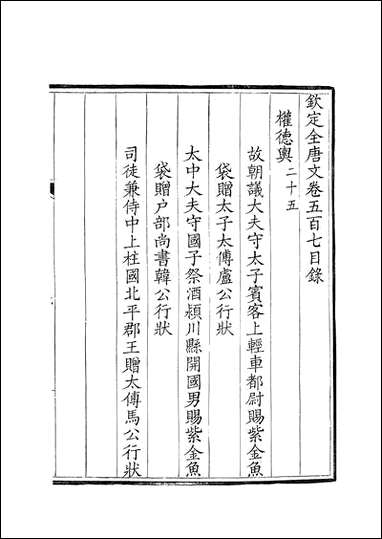 欽定全唐文卷五百七目錄
權德輿二十五
故朝議大夫守太子賓客上輕車都尉賜紫金魚
袋贈太子太傅盧公行狀
太中大夫守國子祭酒潁川縣開國男賜紫金魚
袋贈户部尚書韓公行狀
司徒兼侍中上柱國北平郡王贈太傅馬公行狀